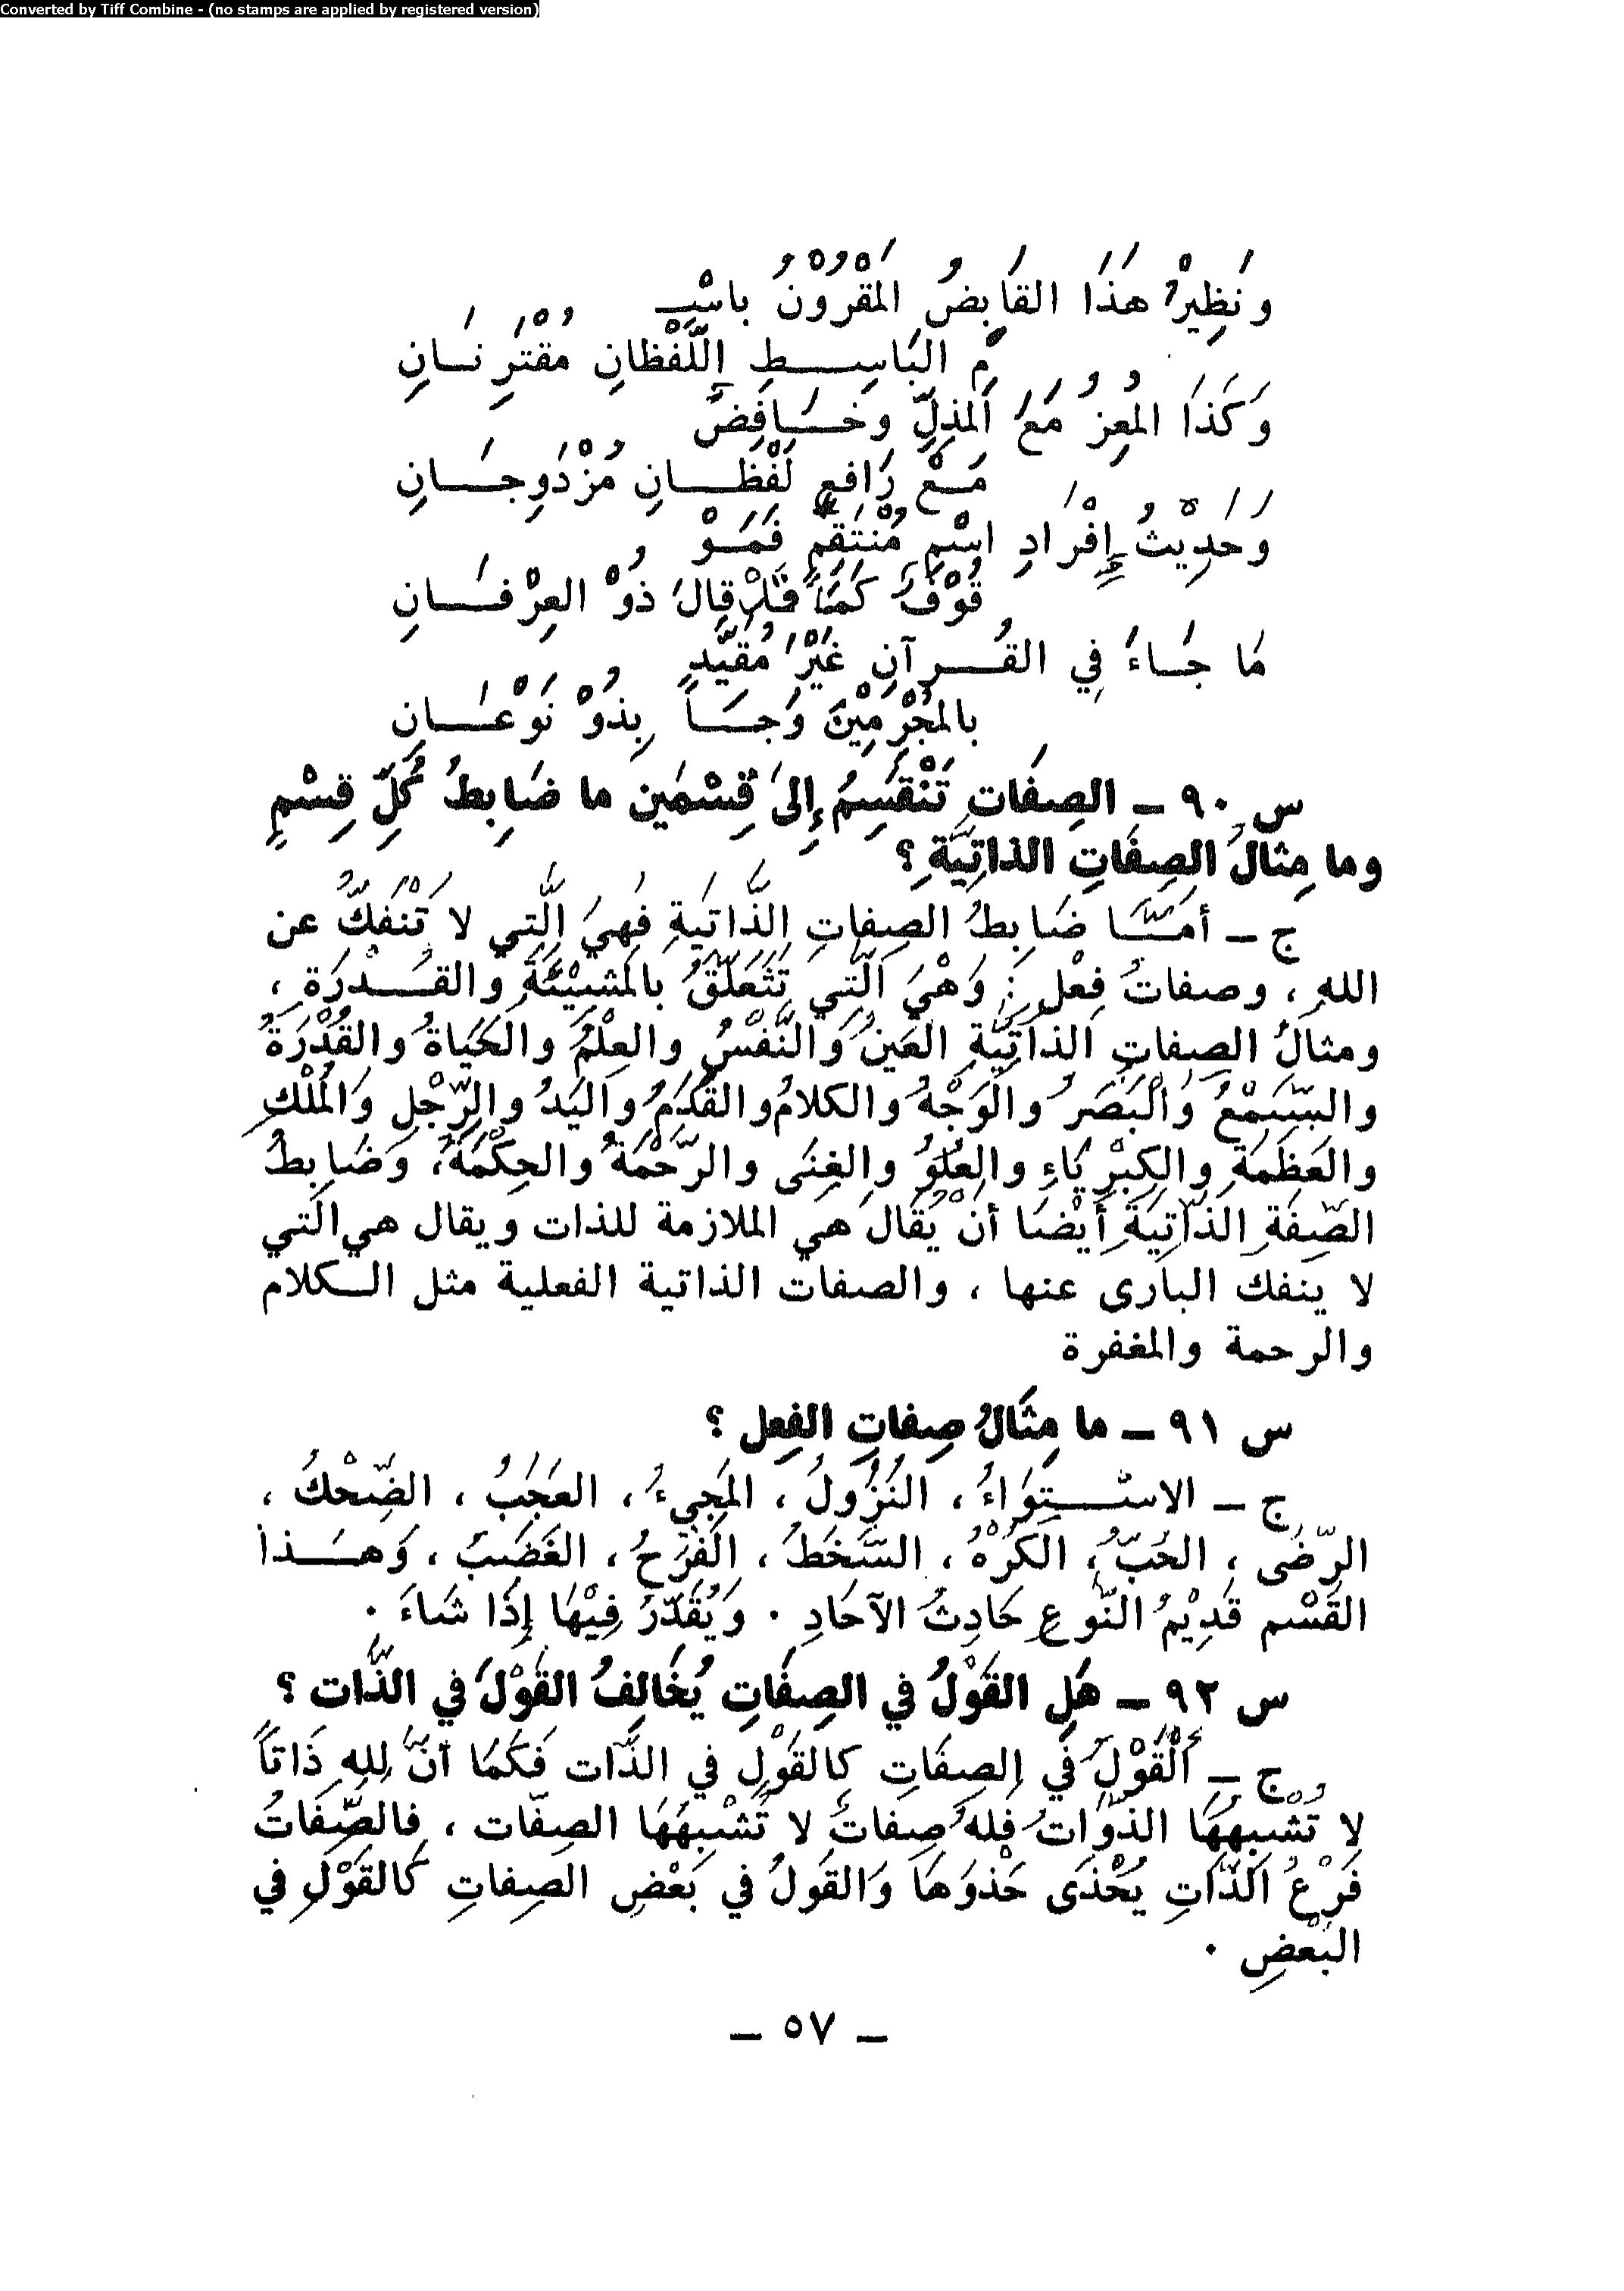 Converted by Tiff Combine - (no stamps are applied by registered version)
ونَظِيرُ هَذَا القَابِضُ المَقْرُوْنُ باسْـ
ـمِ البَاسِـطِ اللَّفْظانِ مُقْتَرِنَـانِ
وَكَذَا المُعِزُّ مَعَ المُذِلِّ وخَـافِضٌ
مَـعْ رَافِعٍ لَفْظَـانِ مُزْدَوِجَـانِ
وَحَدِيْثُ إِفْرَادِ اسْمِ مُنْتَقِمٍ فَمَوْ
قُوْفٌ كَمَا قَدْ قالَ ذُوْ العِرْفَـانِ
مَا جَـاءَ فِي القُـرآنِ غَيْرَ مُقَيَّدٍ
بالمُجْرِمِيْنَ وَجَـا بِذُوْ نَوْعَـانِ
س ٩٠ ـ الصِفَات تَنْقَسِمُ إِلىَ قِسْمَين ما ضَابِطُ كُلِّ قِسْمٍ
وما مِثالُ الصِفَاتِ الذاتِيَّةِ؟
ج ـ أمَّـا ضَابِطُ الصِفاتِ الذَّاتَيةِ فهِيَ الَّتي لا تَنْفَكُّ عن
اللهِ ، وصفاتُ فِعْلٍ : وَهْيَ الَّتِي تَتَعَلَّقُ بالمَشِيْئَةِ والقُـدْرَةِ ،
ومثالُ الصِفاتِ الذاتِيَّةِ العَينُ والنَّفْسُ والعِلْمُ والحَيَاةُ والقُدْرَةُ
والسَّمْعُ والْبَصَرُ والوَجْهُ والكلامُ والقَدَمُ واليَدُ والرِّجْلِ وَالمُلْكِ
والعَظَمَةِ والكِبْرِيَاءِ والعُلُوُّ والغِنَى والرَّحْمَةُ والحِكْمَةُ، وَضَابِطُ
الصِّفَةِ الذَّاتِيَةِ أَيْضَا أنْ يُقَالَ هي الملازمة للذات ويقال هي التي
لا ينفك البارى عنها ، والصفات الذاتية الفعلية مثل الـكلام
والرحمة والمغفرة
س ٩١ ـ ما مِثَالُ صِفاتِ الفِعل ؟
ج ـ الاسْـتِوَاءُ ، النُزُولُ ، المَجِيءُ ، العَجَبُ ، الضِّحْكُ ،
الرِّضَى ، الحُبُّ ، الكُرْهُ ، السَّخَطُ ، الفَرَحُ ، الغَضَبُ ، وَهـَـذا
القَسْم قَدِيْمُ النَّوعِ حَادِثُ الآحَادِ . وَيُقَدَّرُ فِيْهَا إِذَا شَاءَ .
س ٩٢ ـ هَلِ القَوْلُ في الصِفَاتِ يُخَالِفُ القَوْلَ في الذَّات ؟
ج ـ أَلْقَوْلُ فَي الصِفَاتِ كالقَوْلِ في الذَّات فَكَمَا أنَّ لِلهِ ذَاتَاً
لا تُشْبِهِهَا الذَّوَاتُ فلهُ صِفاتٌ لا تُشْبِهُهَا الصِفّات ، فالصِّفَاتُ
فَرْعُ الذَّاتِ يُحْذَى حَذوَهَا وَالقَولُ في بَعْضِ الصِفاتِ كَالقَوْلِ في
البَعْضِ .
ـ ٥٧ ـ